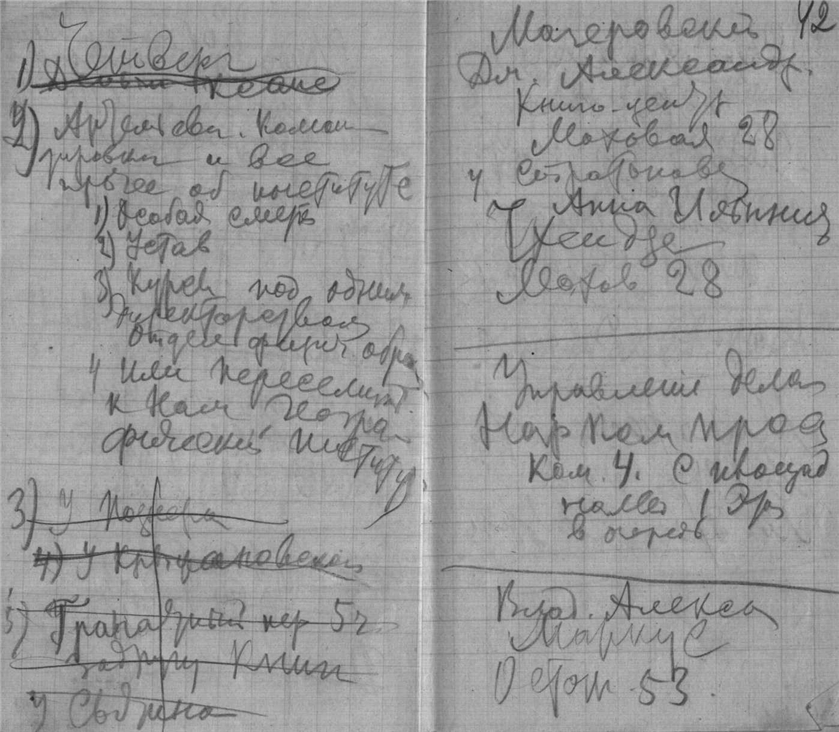 Четверг
1)
2) Артемьева. Коман
дировки и все
прочее об институте
1) Особая смета
2) Устав
3) Курсы под одним
Директорством
отдел физич обра
4 Или переселить
к Нам Геогра
фический институт
3) У
4) У Кржижановской
5) Гранатный пер 5 ч.
задругу Книги
у Сабрина
42
Мачеровский
Дм. Александр.
Книго-центр
Моховая 28
у Стратонова
Анна Ильинич
Моховая 28
Управление делами
Наркомпрод
Ком. 4. С площад
налево 1 Эт
в очередь
Влад. Алекса
Маркус
Остож. 53.